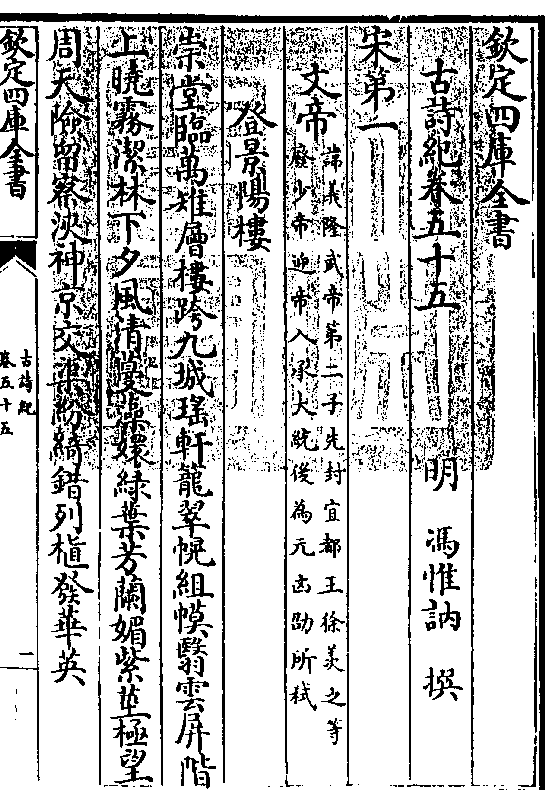 欽定四庫全書
古詩紀卷五十五
明 馮惟訥 撰
宋第一
文帝
諱義隆武帝第二子先封宜都王徐羨之等
廢少帝迎帝入承大統後為元凶劭所弒
登景陽樓
崇堂臨萬雉層樓跨九城瑤軒籠翠幌組幙翳雲屏階
上曉露潔林下夕風清蔓藻嬛綠葉芳蘭媚紫莖極望
周天險留察浹神京交渠紛綺錯列植發華英
欽定四庫全書
古詩紀
卷五十五
一